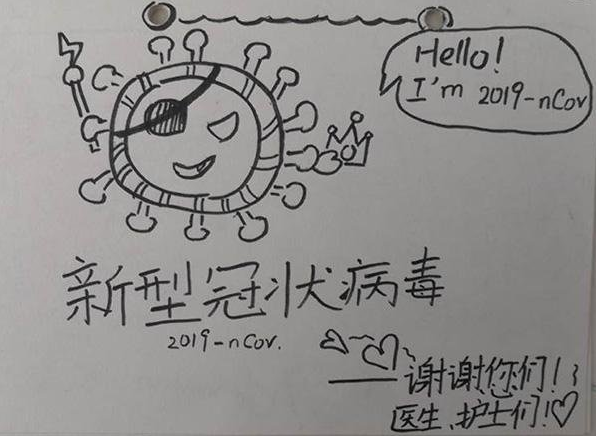 Hello!
I'm 2019-nCov
新型冠状病毒
2019-nCov.
——谢谢您们!
医生、护士们!